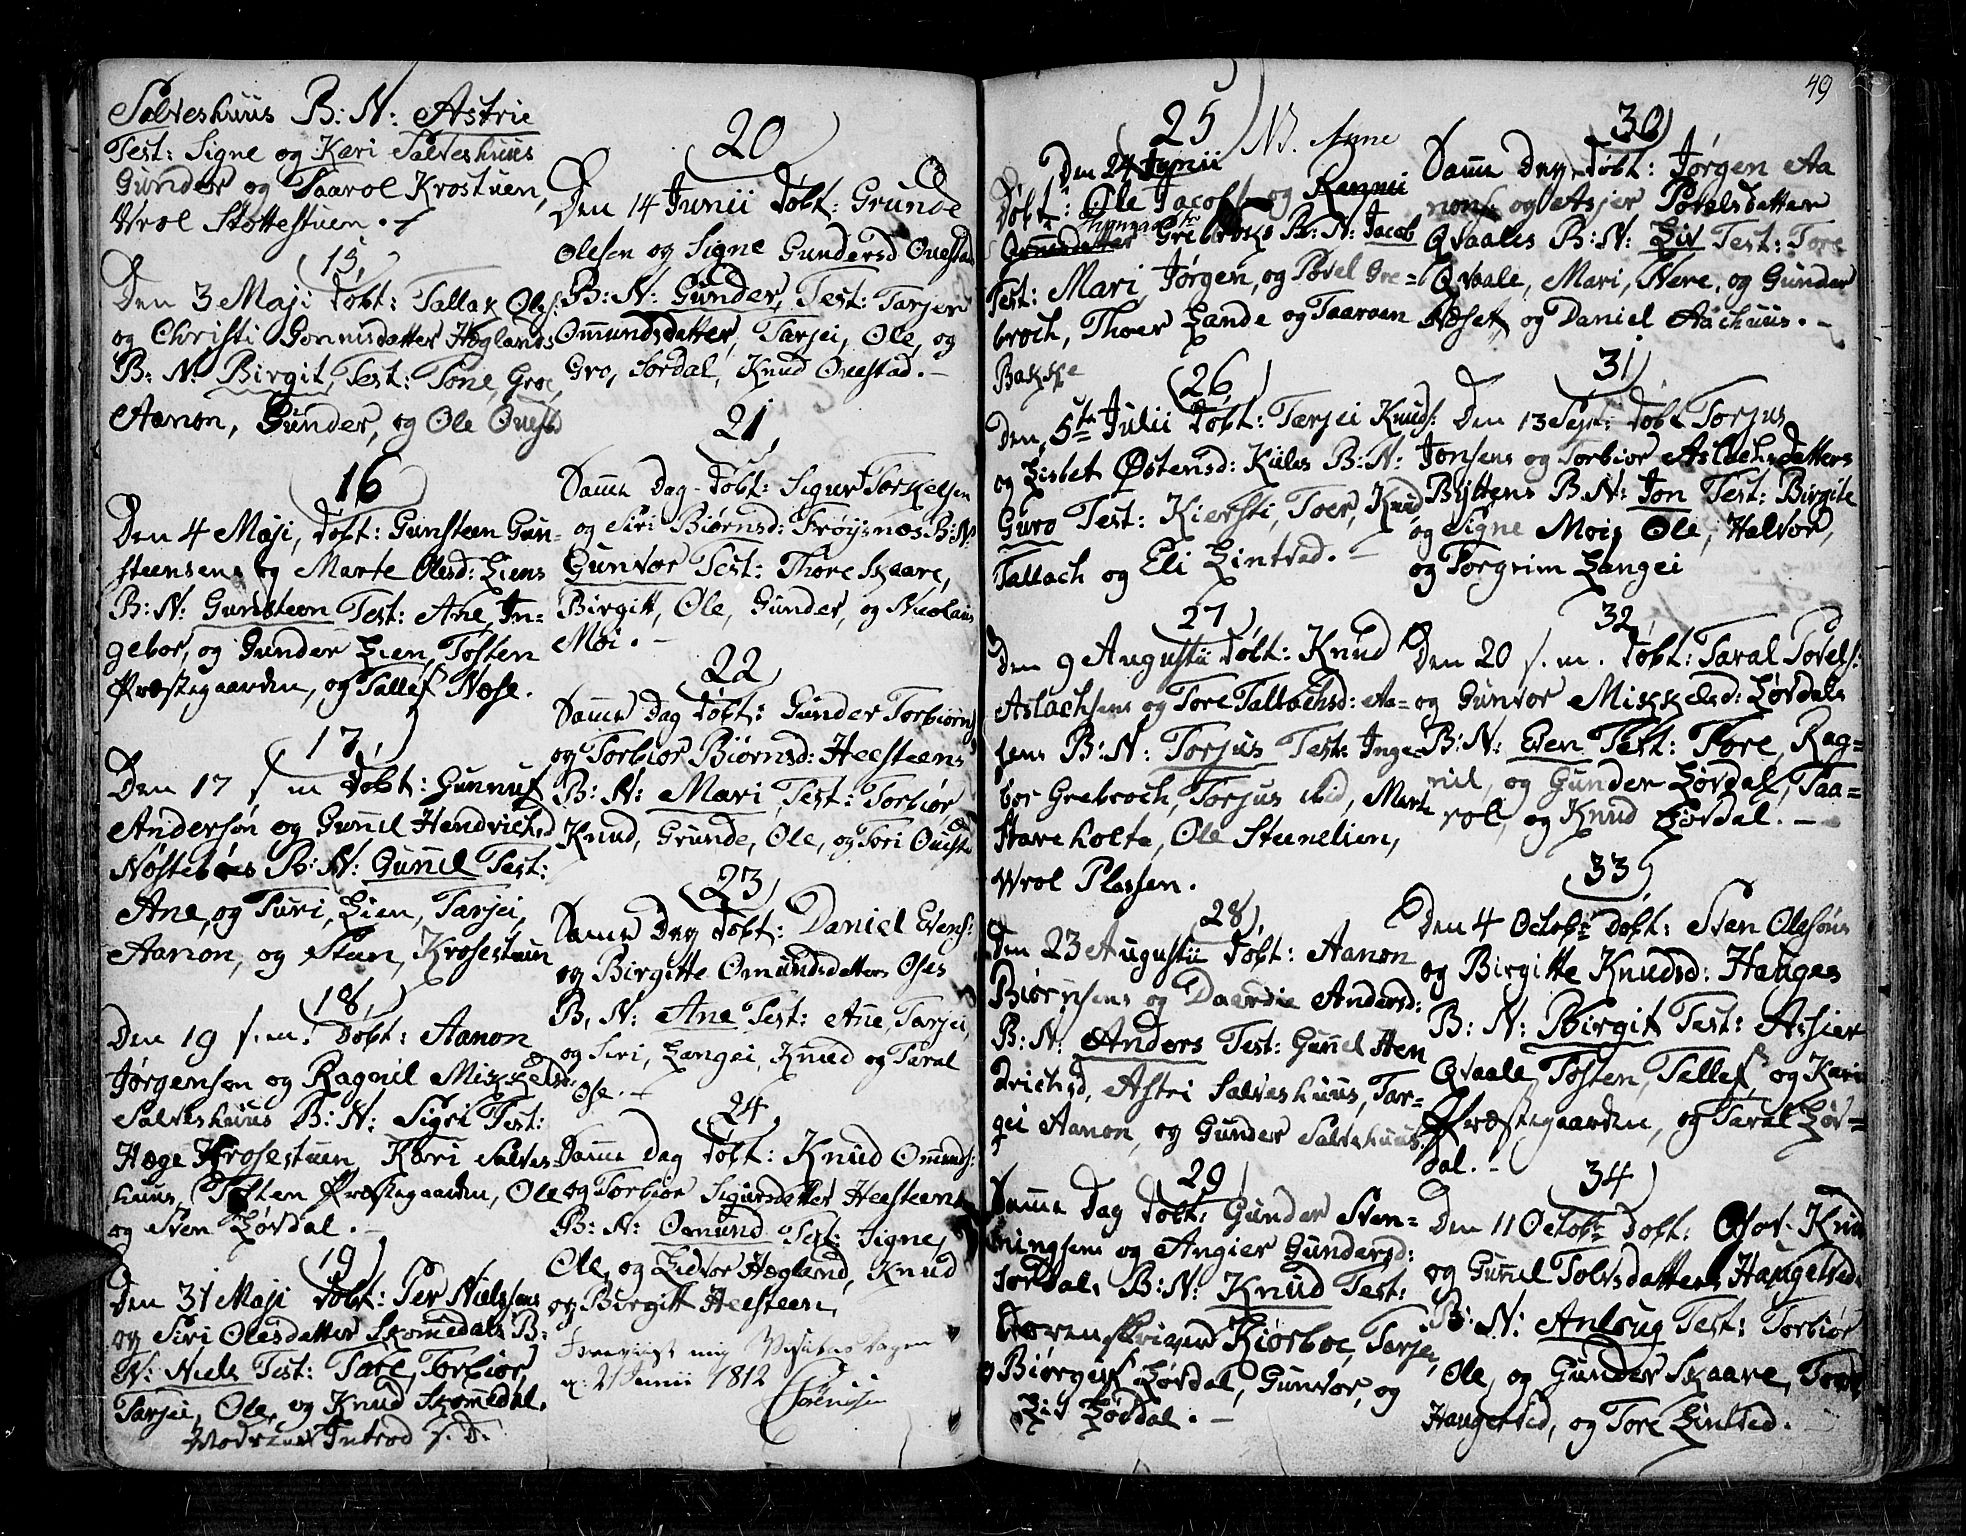 Salveshuus B: N: Astrie
Test: Signe og Kari Salveshuus
Gunder og Taarol Krostuen,
Wrol Stottestuen.
15,
Den 3 Maji døbt: Tallax Ols:
og Christi Gonnisdatter Høglands
B: N: Birgit, Test: Tone, Gro,
Aanon, Gunder, og Ole
16
Den 4 Maji, døbt: Gunsteen Gun-
steensens og Marte Olesd: Liens
B: N: Gunsteen Test: Ane, In-
gebor, og Gunder Lien, Tosten
Præstegaarden, og Tallef Nese.
17,
Den 17 s. m døbt: Gunnuf
Andersøn og Gunnil Hendrichsd
Nøstebøes B: N: Gunnil Test:
Ane, og Turi, Lien, Tarjei,
Aanon, og Steen, Krosestuen
18,
Den 19 s. m. døbt: Aanon
Jørgensen og Ragnil Mikkelsd
Salveshuus B: N: Sigri Test:
Hæge Krosestuen, Kari Salves-
huus, Tosten Præstegaarden, Ole
og Sven Løvdal.
19,
Den 31 Maji døbt: Per Nielssens
og Siri Olesdatter Skomedals B:
N: Niels Test: Tare, Torbior,
Tarjei, Ole, og Knud Skomedal.
Moderens Introd s. D.
20
Den 14 Junii døbt: Grunde
Olesen og Signe Gundersd Ouestad
B: N: Gunder, Test: Tarjer
Ommundsdatter, Tarjei, Ole, og
Gro, Sordal, Knud Ouestad.
21,
Samme Dag døbt: Sigur Torkelsen
og Siri Biørnsd: Frøysnæs B: N:
Gunvor Test: Thore Skaare,
Birgitt, Ole, Gunder, og Nicolaus
Moi.
22
Samme Dag døbt: Gunder Torbiørns
og Torbior Biørnsd: Heesteens
B: N: Mari, Test: Torbiør,
Knud, Grunde, Ole, og Tori Ouesta
23
Samme Dag døbt: Daniel Evens:
og Birgitte Omundsdatters Oses
B, N: Ane Test: Ane, Tarjei,
og Siri, Langei, Knud og Taral
Ose.
24
Samme Dag døbt: Knud Ommunds:
og Torbior Sigursdatter Heesteens
B: N: Osmund Test: Signe,
Ole, og Lidvor Høgland, Knud
og Birgitt Heesteen,
Foreviist mig Visitas dagen
d: 21 Junii 1812
Sørenssen
25 NB. Anne
Den 24 Junii
Døbt: Ole Jacobs og
Grebroks B: N: Jacob
Test: Mari Jørgen, og Povel Gre-
broch, Thoer Lande og Taaroen
Bakke
26,
Den 5te Julii døbt: Tarjei Knuds:
og Lisbet Østensd: Kules B: N:
Guro Test: Kiersti, Toer, Knud,
Tallach og Eli Lintved.
27
Den 9 Augustii døbt: Knud
Aslachsens og Tore Tallachsd: Aa-
sens B: N: Torjus Test: Inge-
bor Grebroch, Torjus ibid, Marte
Hareholte, Ole Steenelien,
Wrol Plassen.
28,
Den 23 Augustii døbt: Aanon
Biørnsens og Daardie Andersd:
B: N: Anders Test: Gunnil Hen
drichsd, Astri Salveshuus, Tar-
gei Aanon, og Gunder Salvehuus.
29
Samme Dag døbt: Gunder Sven-
ningsens og Angier Gundersd:
Sordals B: N: Knud Test:
Sorenskriver Kiørboe, Tarje,
og Biørguf Løvdal, Gunvor, og
Liv Løvdal.
49
30
Samme Dag døbt: Jørgen Aa
nons og Asjer Povelsdatter
Qvaales B: N: Liv Test: Tore
Qvaale, Mari, Nere, og Gunder
Neset, og Daniel Aachuus.
31,
Den 13 Septr: døbt Torjus
Jonsens og Torbior Aslachsdatters
Byttens B: N: Jon Test: Birgite
og Signe Mois Ole, Halvor,
og Torgrim Langei
32
Den 20 s. m. døbt: Taral Povels:
og Gunvor Mikkelsd: Løvdals
B: N: Even Test: Tore, Rag-
nil, og Gunder Løvdal, Taa-
rol, og Knud Løvdal.
33,
Den 4 Octobr døbt: Sven Olesøns
og Birgitte Knudsd: Hauges
B: N: Birgit Test: Assier
Qvaale, Tosten, Tellef, og Kari
Præstegaarden, og Taral Løv-
dal.
34
Den 11 Octobr døbt: Osov Knud
og Gunnil Tolvsdatters Haugetved
B: N: Anlaug Test: Torbiør
Ole, og Gunder Skaare, Tore
Haugetved, og Tore Lintved.